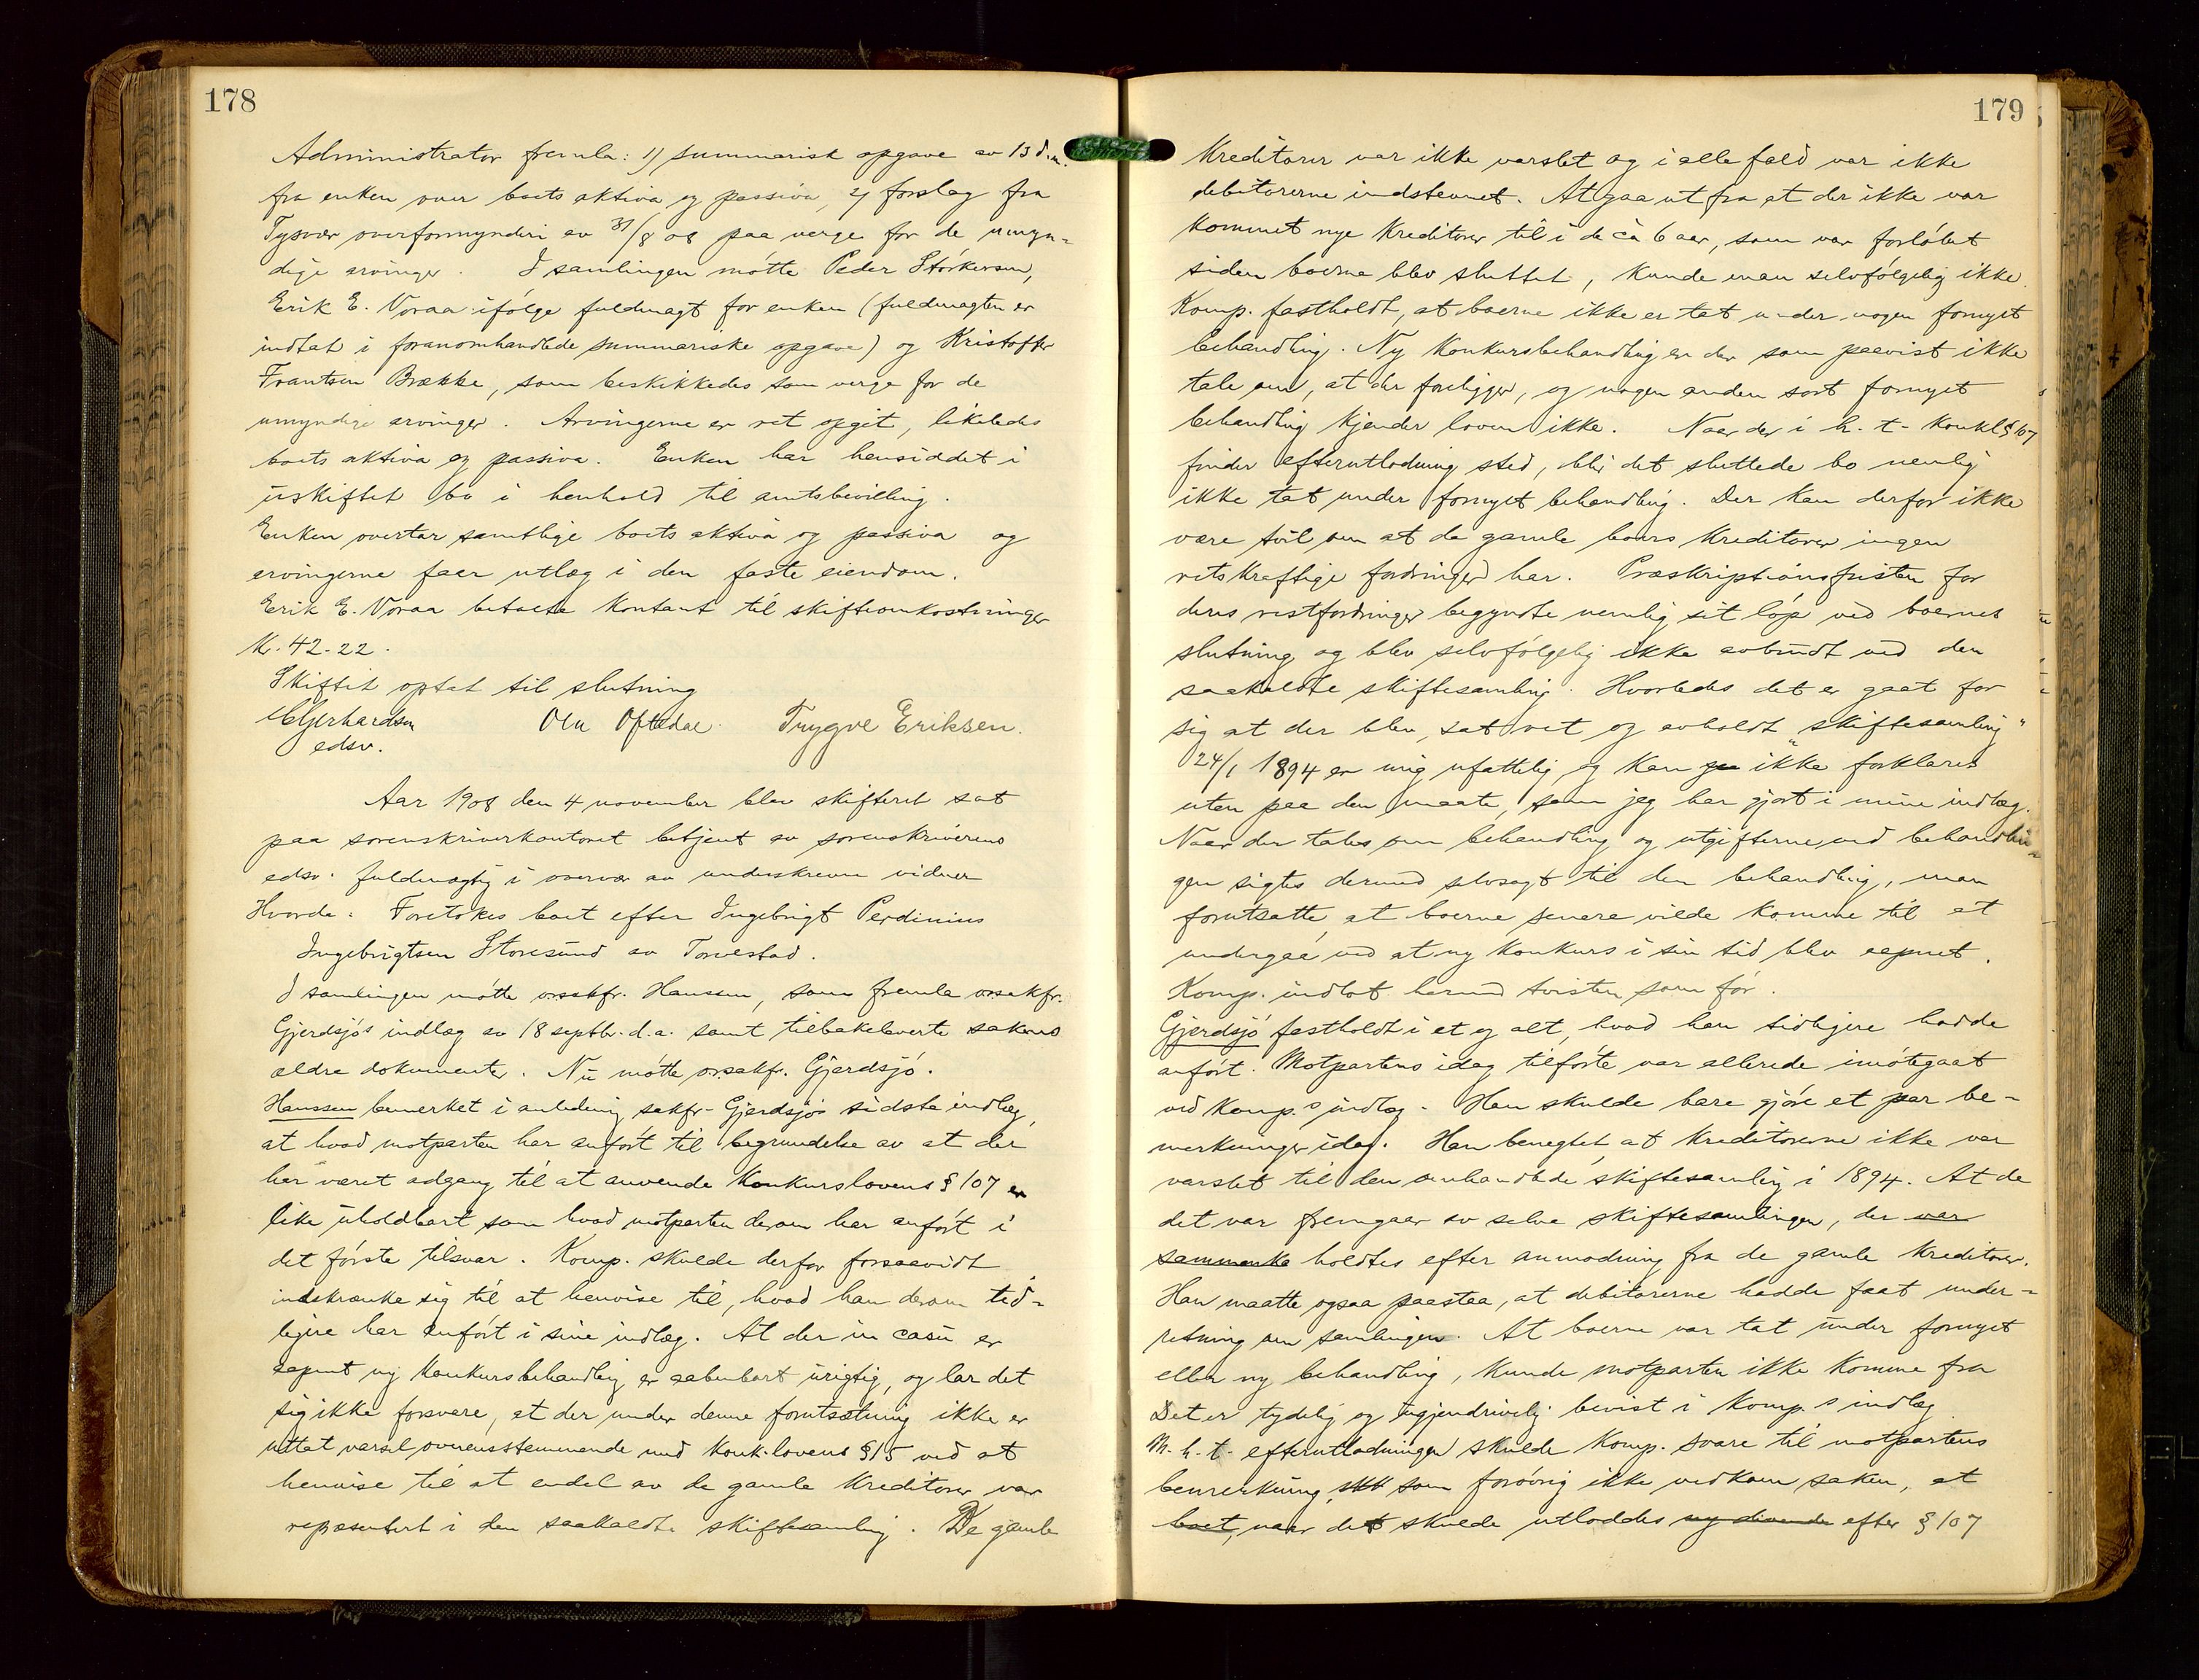 178
Administrator fremla: 1) summarisk opgave av 13 d.m.
fra enken over boets aktiva og passiva, 2) forslag fra
Tysvær overformynderi av 31/8 08 paa verge for de umyn-
dige arvinger. I samlingen møtte Peder Størkersen,
Erik E. Voraa ifølge fuldmagt for enken (fuldmagten er
indtat i foranomhandlede summariske opgave) og Kristoffer
Frantsen Brække, som beskikkedes som verge for de
umyndige arvinger. Arvingerne er ret opgit, likeledes
boets aktiva og passiva. Enken har hensiddet i
uskiftet bo i henhold til amtsbevilling.
Enken overtar samtlige boets aktiva og passiva og
arvingerne faar utlæg i den faste eiendom.
Erik E. Voraa betalte kontant til skifteomkostninger
kr. 42.22.
Skiftet optat til slutning
Gjerhardsen Ola Oftedal. Trygve Eriksen.
edsv.
Aar 1908 den 4 november blev skifteret sat
paa sorenskriverkontoret betjent av sorenskriverens
edsv. fuldmægtig i overvær av underskrevne vidner
Hvorda: Foretokes boet efter Ingebrigt Perdinius
Ingebrigtsen Storesund av Torvestad.
I samlingen møtte o.r.sakfr. Hanssen, som fremla o.r.sakfr.
Gjerdsjø's indlæg av 18 septbr. d.a. samt tilbakeleverte sakens
ældre dokumenter. Nu møtte o.r.sakfr. Gjerdsjø.
Hanssen bemerket i anledning sakfr. Gjerdsjøs sidste indlæg,
at hvad motparten har anført til begrundelse av at der
har været adgang til at anvende Konkurslovens § 107 er
like uholdbart som hvad motparten derom har anført i
det første tilsvar. Komp. skulde derfor forsaavidt
indskrænke sig til at henvise til, hvad han derom tid-
ligere har anført i sine indlæg. At der in casu er
aapnet ny konkursbehandling er aabenbart urigtig, og lar det
sig ikke forsvare, at der under denne forutsætning ikke er
uttat varsel overensstemmende med Konk.lovens § 15 ved at
henvise til at endel av de gamle kreditorer var
repræsentert i den saakaldte skiftesamling. De gamle
179
kreditorer var ikke varslet og i alle fald var ikke
debitorerne indstevnet. At gaa ut fra at der ikke var
kommet nye kreditorer til i de ca 6 aar, som var forløbet
siden boerne blev sluttet, kunde man selvfølgelig ikke.
Komp. fastholdt, at boerne ikke er tat under nogen fornyet
behandling. Ny konkursbehandling er der som paavist ikke
tale om, at der foreligger, og nogen anden sort fornyet
behandling kjender loven ikke. Naar der i h. t. konkl § 107
finder efterutlodning sted, blir det sluttede bo nemlig
ikke tat under fornyet behandling. Der kan derfor ikke
være tvil om at de gamle boers kreditorer ingen
retskraftige fordringer har. Præskriptionsfristen for
deres restfordringer begyndte nemlig sit løp ved boernes
slutning og blev selvfølgelig ikke avbrudt ved den
saakaldte skiftesamling. Hvorledes det er gaat for
sig at der blev sat ret og avholdt "skiftesamling"
24/1 1894 er mig ufattelig og kan ikke forklares
uten paa den maate, som jeg har gjort i mine indlæg.
Naar der tales om behandling og utgifterne ved behandlin-
gen sigtes dermed selvsagt til den behandling, man
forutsatte, at boerne senere vilde komme til at
undergaa ved at ny konkurs i sin tid blev aapnet.
Komp. indlot hermed tvisten som før.
Gjerdsjø fastholdt i et og alt, hvad han tidligere hadde
anført. Motpartens idag tilførte var allerede imøtegaat
ved Komp.s indlæg. Han skulde bare gjøre et par be-
merkninger idag. Han benegtet, at kreditorerne ikke var
varslet til den omhandlede skiftesamling i 1894. At de
det var fremgaar av selve skiftesamlingen, der var
sammenka holdtes efter anmodning fra de gamle kreditorer.
Han maatte ogsaa paastaa, at debitorerne hadde faat under-
retning om samlingen. At boerne var tat under fornyet
eller ny behandling, kunde motparten ikke komme fra
Det er tydelig og ugjendrivelig bevist i komp.s indlæg
M. h. t. efterutlodningen skulde Komp. svare til motpartens
bemerkning, som forøvrig ikke vedkom saken, at
boet, naar det skulde utloddes efter § 107